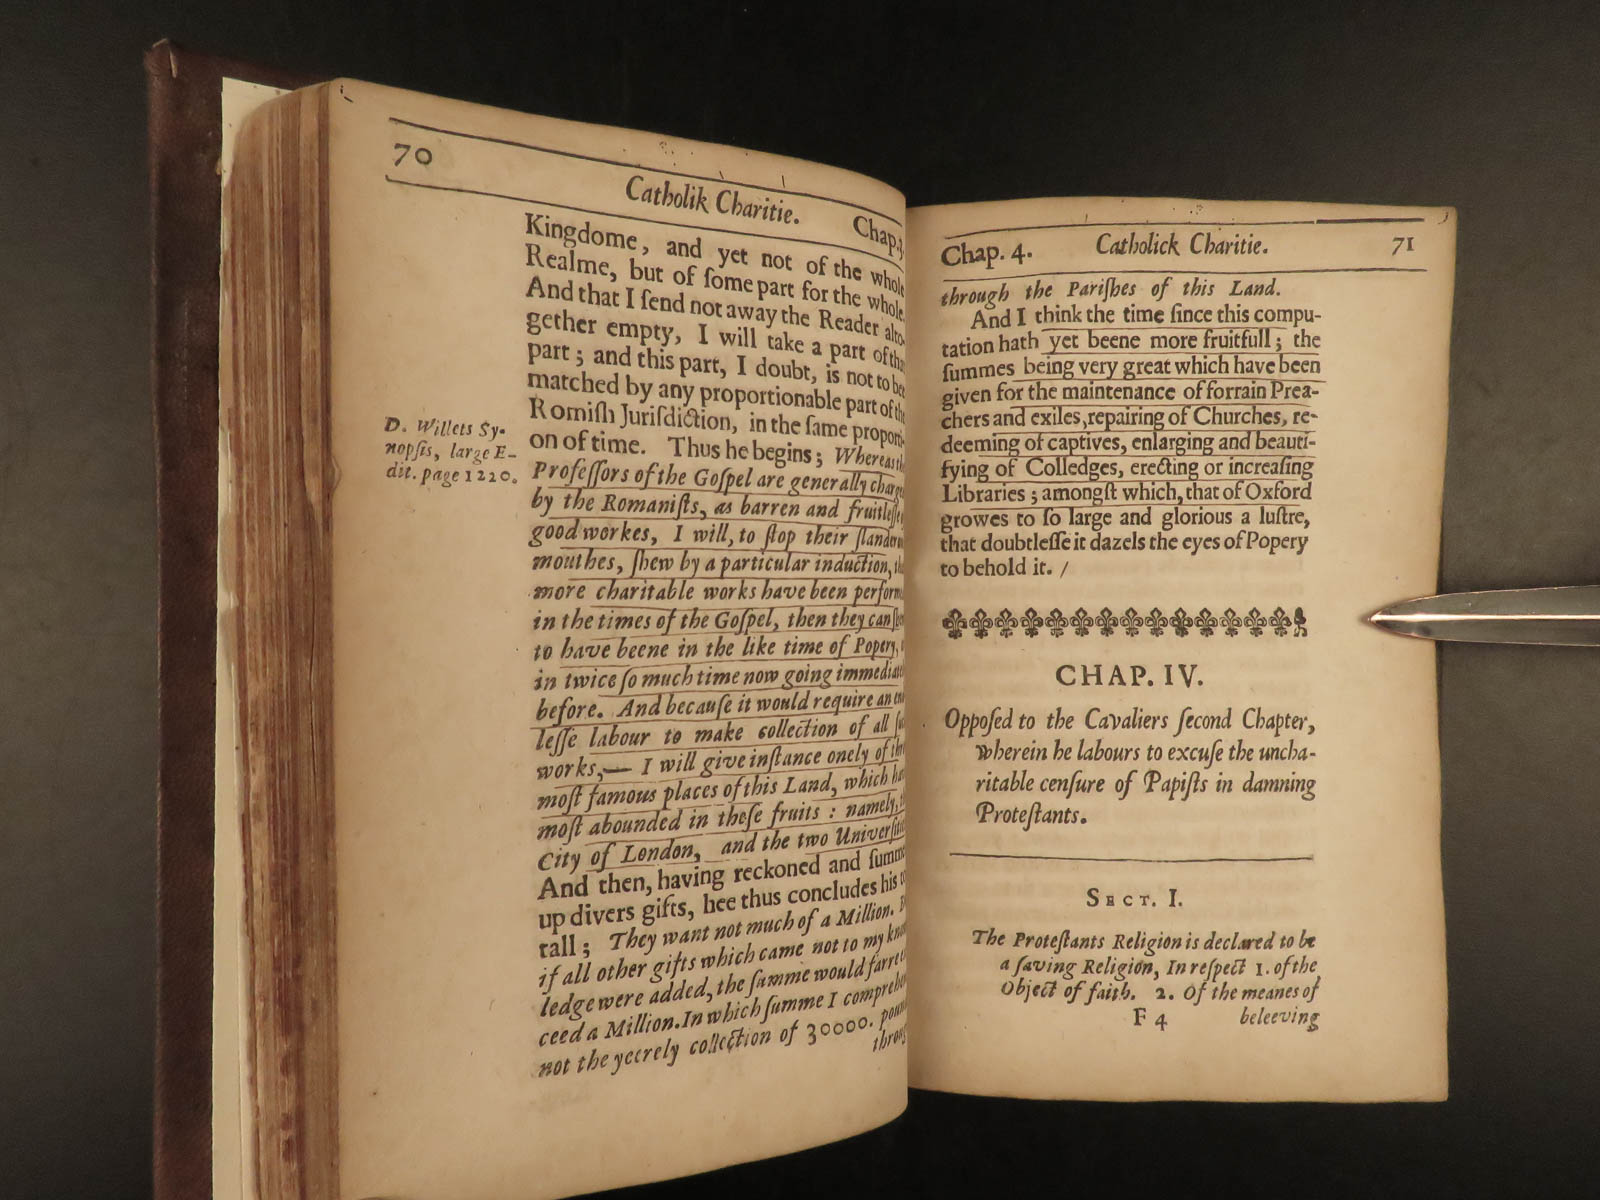 70
Catholik Charitie.
Chap.3.
Kingdome, and yet not of the whole
Realme, but of ſome part for the whole.
And that I ſend not away the Reader alto-
gether empty, I will take a part of that
part; and this part, I doubt, is not to bee
matched by any proportionable part of the
Romiſh Juriſdiction, in the ſame proporti-
on of time. Thus he begins; Whereas the
Profeſſors of the Goſpel are generally charg
by the Romaniſts, as barren and fruitleſſe
good workes, I will, to ſtop their ſlander
mouthes, ſhew by a particular induction,
more charitable works have been perform
in the times of the Goſpel, then they can
to have beene in the like time of Popery,
in twice ſo much time now going immediat
before. And becauſe it would require an
leſſe labour to make collection of all
works,— I will give inſtance onely of
moſt famous places of this Land, which
moſt abounded in theſe fruits : namely,
City of London, and the two Univerſit
And then, having reckoned and ſumm
up divers gifts, hee thus concludes his
tall; They want not much of a Million.
if all other gifts which came not to my
ledge were added, the ſumme would farre
ceed a Million. In which ſumme I compreh
not the yeerely collection of 30000. poun
throug
D. Willets Sy-
nopſis, large E-
dit. page 1220.
Chap. 4. Catholick Charitie. 71
through the Pariſhes of this Land.
And I think the time ſince this compu-
tation hath yet beene more fruitfull; the
ſummes being very great which have been
given for the maintenance of forrain Prea-
chers and exiles, repairing of Churches, re-
deeming of captives, enlarging and beauti-
fying of Colledges, erecting or increaſing
Libraries; amongſt which, that of Oxford
growes to ſo large and glorious a luſtre,
that doubtleſſe it dazels the eyes of Popery
to behold it. /
CHAP. IV.
Oppoſed to the Cavaliers ſecond Chapter,
wherein he labours to excuſe the uncha-
ritable cenſure of Papiſts in damning
Proteſtants.
SECT. I.
The Proteſtants Religion is declared to be
a ſaving Religion, In reſpect 1. of the
Object of faith. 2. Of the meanes of
F 4 beleeving